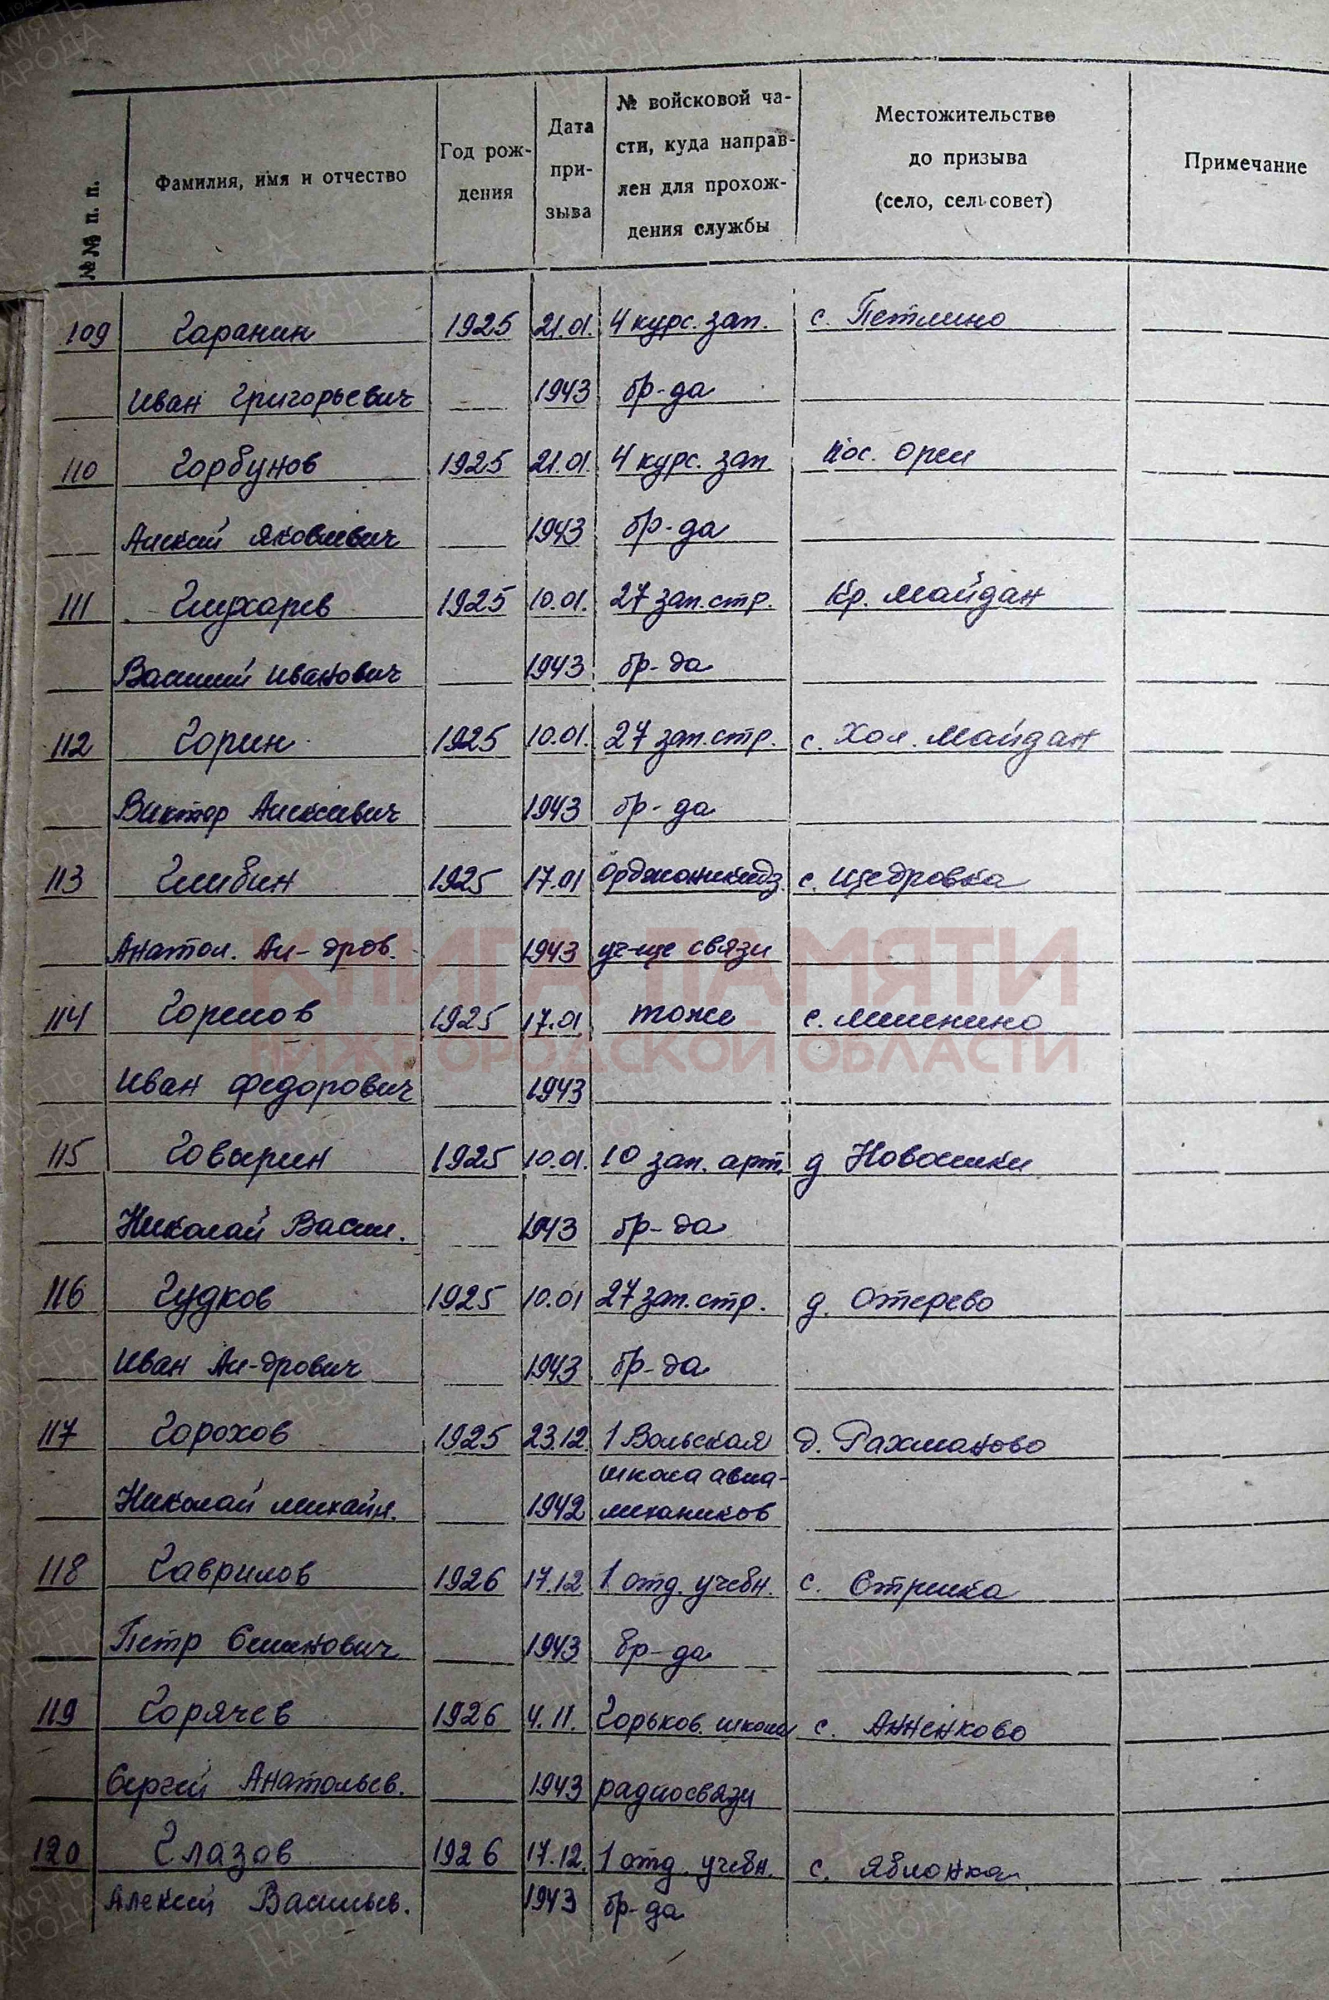 №№ п. п.
Фамилия, имя и отчество
Год рож-
дения
Дата
при-
зыва
№ войсковой ча-
сти, куда направ-
лен для прохож-
дения службы
Местожительство
до призыва
(село, сельсовет)
Примечание
109 Гаранин 1925 21.01. 4 курс. зап. с. Петлино
Иван Григорьевич 1943 бр-да
110 Горбунов 1925 21.01. 4 курс. зап пос.
Алексей Яковлевич 1943 бр-да
111 Глухарев 1925 10.01. 27 зап. стр. Кр. Майдан
Василий Иванович 1943 бр-да
112 Горин 1925 10.01. 27 зап. стр. с. Хол. Майдан
Виктор Алексеевич 1943 бр-да
113 Глибин 1925 17.01 Орджоникидз. с. Щедровка
Анатол. Ал-дров. 1943 уч-ще связи
КНИГА ПАМЯТИ
114 Горелов 1925 17.01 тоже с.
НИЖЕГОРОДСКОЙ ОБЛАСТИ
Иван Федорович 1943
115 Говырин 1925 10.01. 10 зап. арт. д Новоселки
Николай Васил. 1943 бр-да
116 Гудков 1925 10.01 27 зап. стр. д. Отерево
Иван Ал-дрович 1943 бр-да
117 Горохов 1925 23.12. 1 Вольская д. Рахманово
школа авиа-
Николай Михайл. 1942 механиков
118 Гаврилов 1926 17.12. 1 отд. учебн. с. Стрелка
Петр Семенович 1943 бр-да
119 Горячев 1926 4.11. Горьков. школа с. Анненково
Сергей Анатольев. 1943 радиосвязи
120 Глазов 1926 17.12. 1 отд. учебн. с. Яблонка
Алексей Васильев. 1943 бр-да